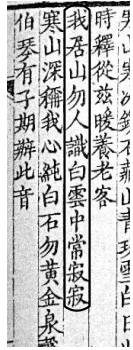 山寒冰鎖石藏山青現雪白日
時釋從兹暖養老客
我居山勿人識白雲中常寂寂
寒山深稱我心純白石勿黃金泉聲
伯琴有子期辨此音